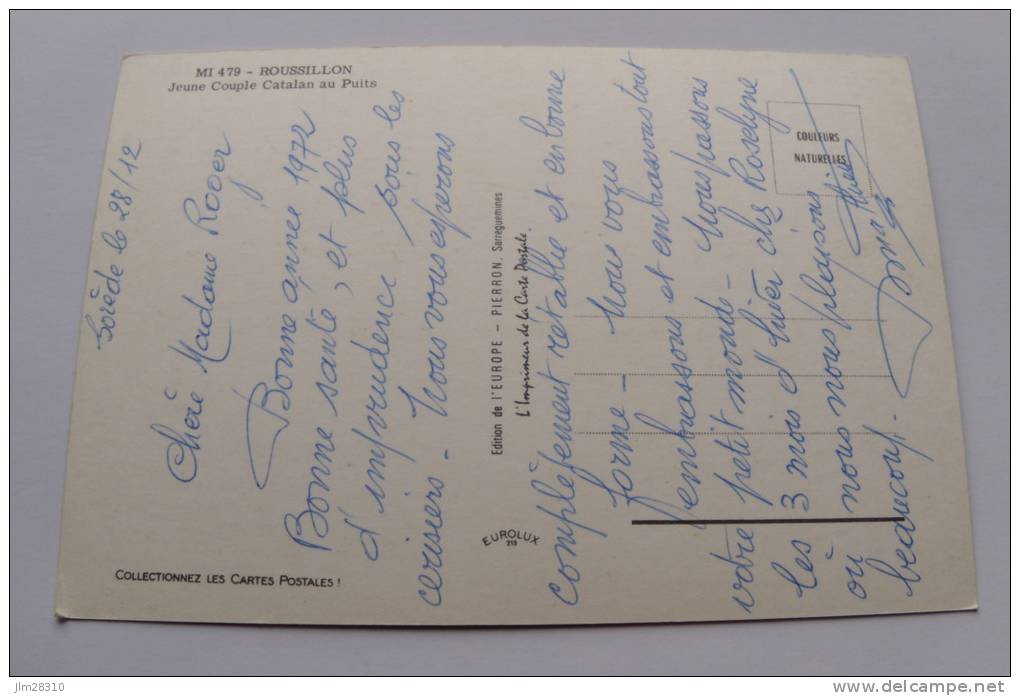 MI 479 - ROUSSILLON
Jeune Couple Catalan au Puits
Sorède le 28/12
Chère Madame Roger
Bonne année 1972
Bonne santé, et plus
d'imprudence sous les
cerisiers - Nous vous esperons
complètement rétablie et en bonne
forme - Nous vous
embrassons et embrassons tout
votre petit monde - Nous passons
les 3 mois d'hiver chez Roselyne
où nous nous plaisons
beaucoup.
COULEURS
NATURELLES
Edition de l'EUROPE - PIERRON, Sarreguemines
L'Imprimeur de la Carte Postale
EUROLUX
213
COLLECTIONNEZ LES CARTES POSTALES !
jlm28310
delcampe.net